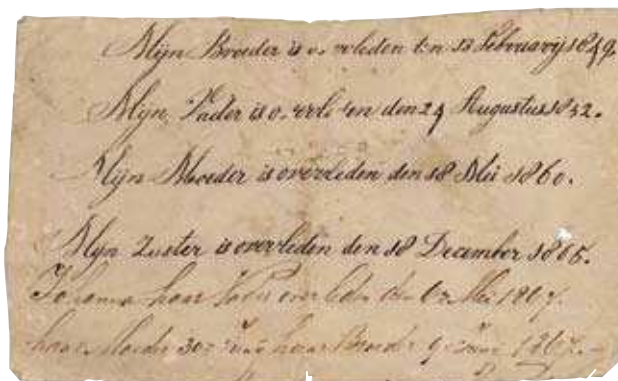 Mijn Broeder is overleden den 13 Februarij 1849.
Mijn Vader is overleden den 24 Augustus 1852.
Mijn Moeder is overleden den 18 Mei 1860.
Mijn Zuster is overleden den 18 December 1865.
Johanna haar Vader overleden den 6 Mei 1867.
haar Moeder 30 haar Broeder 9 Juni 1867.